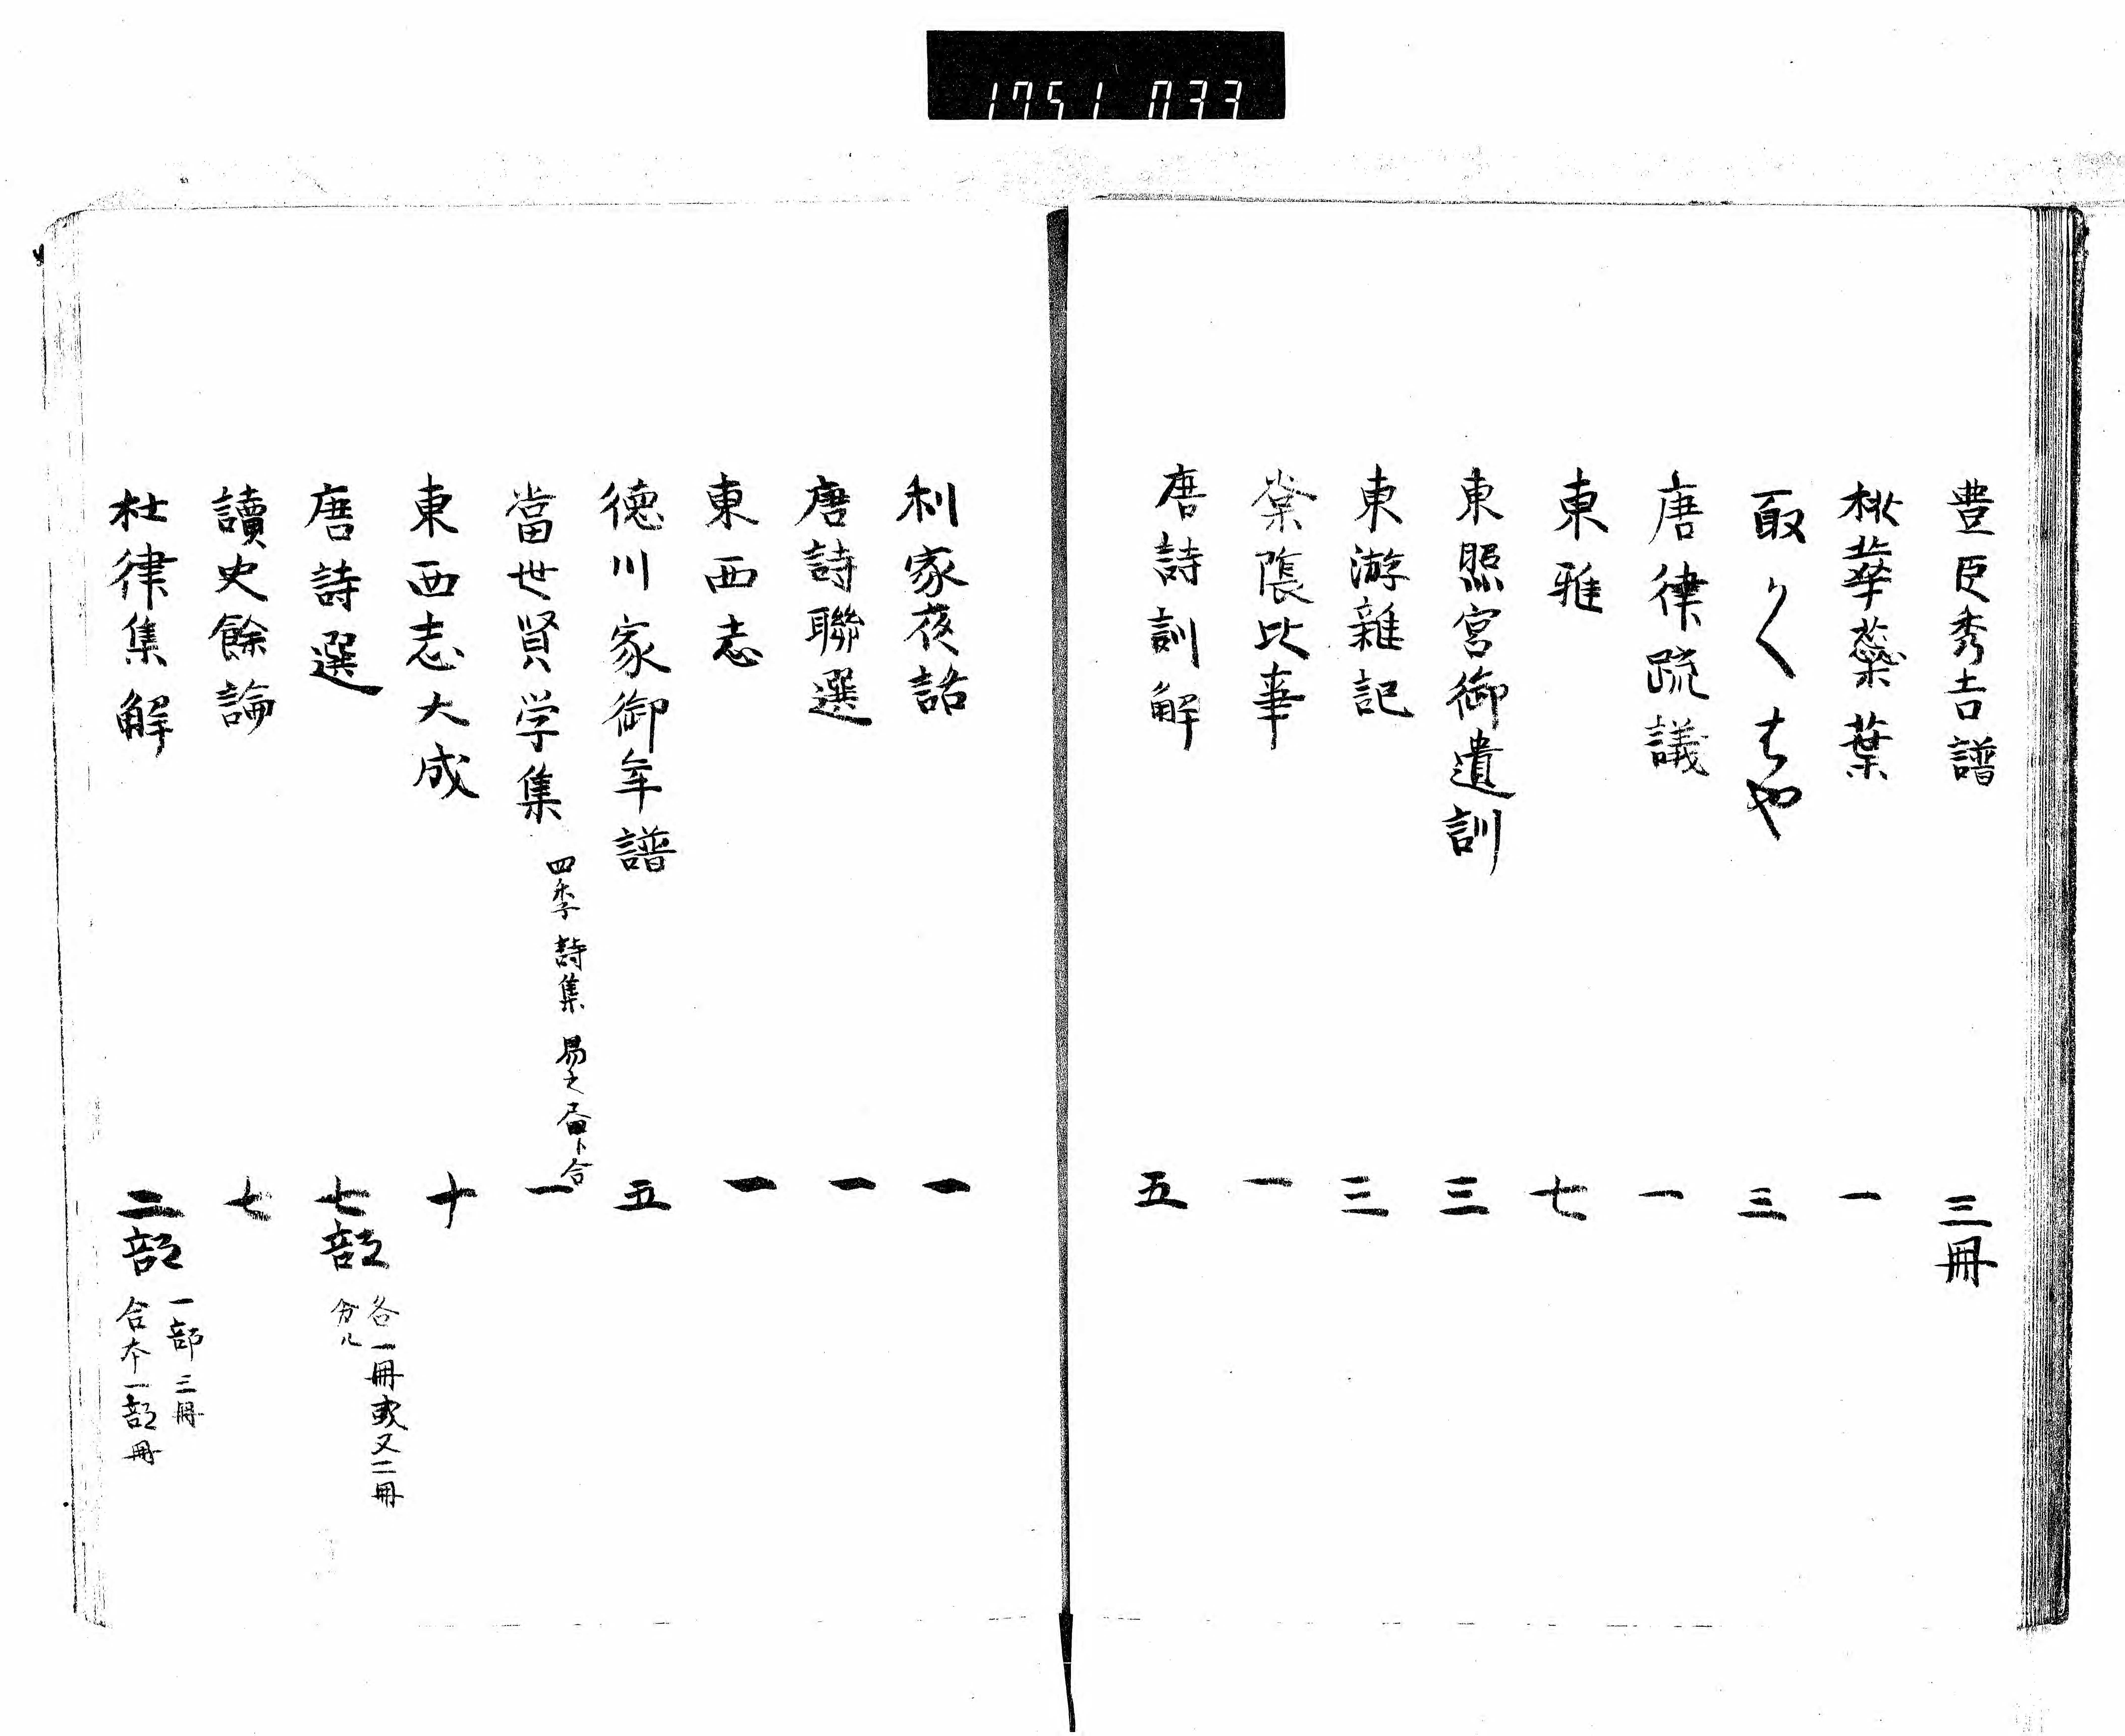 1751 033
豊臣秀吉譜 三冊
桃華蘂葉 一
取かへばや 三
唐律疏議 一
東雅 七
東照宮御遺訓 三
東游雜記 三
棠陰比事 一
唐詩訓解 五
利家夜話 一
唐詩聯選 一
東西志 一
徳川家御年譜 五
當世賢学集 四季詩集 易之 ト合 一
東西志大成 十
唐詩選 七部 各一冊或又二冊
分ル
讀史餘論 七
杜律集解 二部 一部三冊
合本一部冊